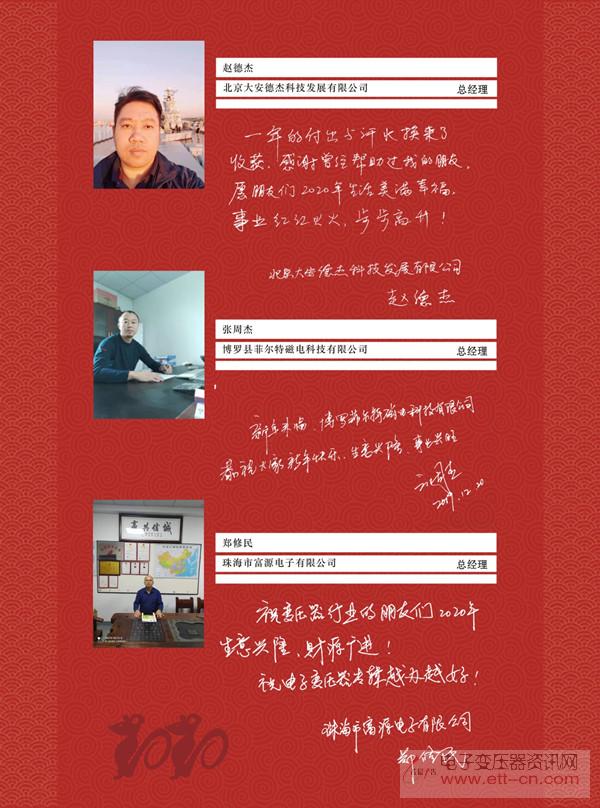 赵德杰
北京大安德杰科技发展有限公司 总经理
一年的付出与汗水换来了
收获，感谢曾经帮助过我的朋友，
愿朋友们2020年生活美满幸福，
事业红红火火，步步高升！
北京大安德杰科技发展有限公司
赵德杰
张周杰
博罗县菲尔特磁电科技有限公司 总经理
新年来临，博罗菲尔特磁电科技有限公司
恭祝大家新年快乐、生意兴隆、事业兴旺
张周杰
2019.12.20
富共信诚
郑修民
珠海市富源电子有限公司 总经理
祝变压器行业的朋友们2020年
生意兴隆，财源广进！
祝电子变压器专辑越办越好！
珠海市富源电子有限公司
郑修民
电子变压器资讯网
www.ett-cn.com